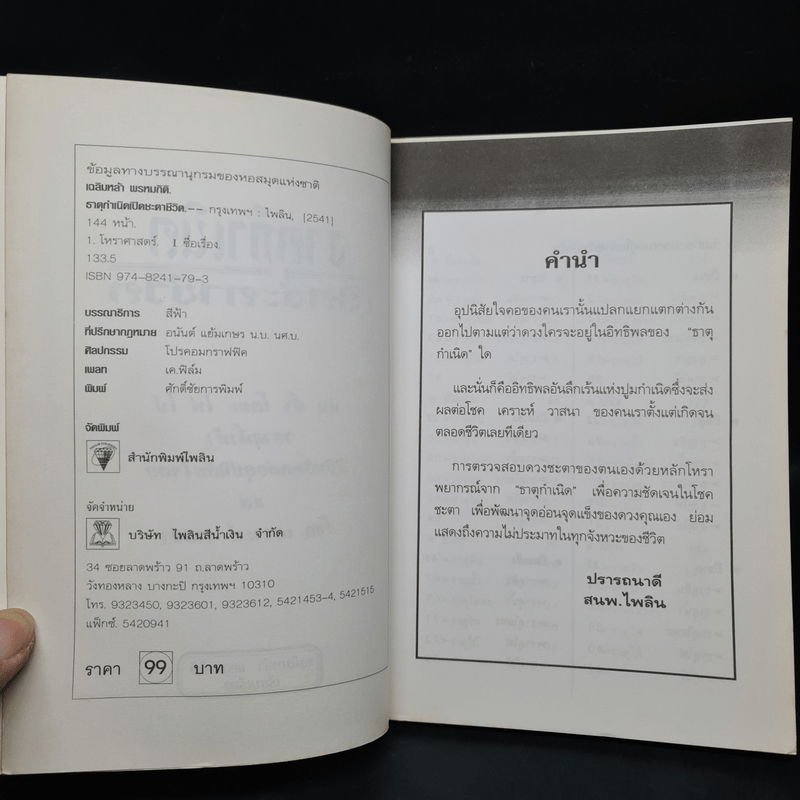 ข้อมูลทางบรรณานุกรมของหอสมุดแห่งชาติ
เฉลิมหล้า พรหมกิติ.
ธาตุกำเนิดเปิดชะตาชีวิต.-- กรุงเทพฯ : ไพลิน, [2541]
144 หน้า.
1. โหราศาสตร์. I ชื่อเรื่อง.
133.5
ISBN 974-8241-79-3
บรรณาธิการ สีฟ้า
ที่ปรึกษากฎหมาย อนันต์ แย้มเกษร น.บ. นศ.บ.
ศิลปกรรม โปรคอมกราฟฟิค
เพลท เค.ฟิล์ม
พิมพ์ ศักดิ์ชัยการพิมพ์
จัดพิมพ์
สำนักพิมพ์ไพลิน
จัดจำหน่าย
บริษัท ไพลินสีน้ำเงิน จำกัด
34 ซอยลาดพร้าว 91 ถ.ลาดพร้าว
วังทองหลาง บางกะปิ กรุงเทพฯ 10310
โทร. 9323450, 9323601, 9323612, 5421453-4, 5421515
แฟ็กซ์. 5420941
ราคา 99 บาท
คำนำ
อุปนิสัยใจคอของคนเรานั้นแปลกแยกแตกต่างกัน
ออกไปตามแต่ว่าดวงใครจะอยู่ในอิทธิพลของ "ธาตุ
กำเนิด" ใด
และนั่นก็คืออิทธิพลอันลึกเร้นแห่งปูมกำเนิดซึ่งจะส่ง
ผลต่อโชค เคราะห์ วาสนา ของคนเราตั้งแต่เกิดจน
ตลอดชีวิตเลยทีเดียว
การตรวจสอบดวงชะตาของตนเองด้วยหลักโหรา
พยากรณ์จาก "ธาตุกำเนิด" เพื่อความชัดเจนในโชค
ชะตา เพื่อพัฒนาจุดอ่อนจุดแข็งของดวงคุณเอง ย่อม
แสดงถึงความไม่ประมาทในทุกจังหวะของชีวิต
ปรารถนาดี
สนพ.ไพลิน